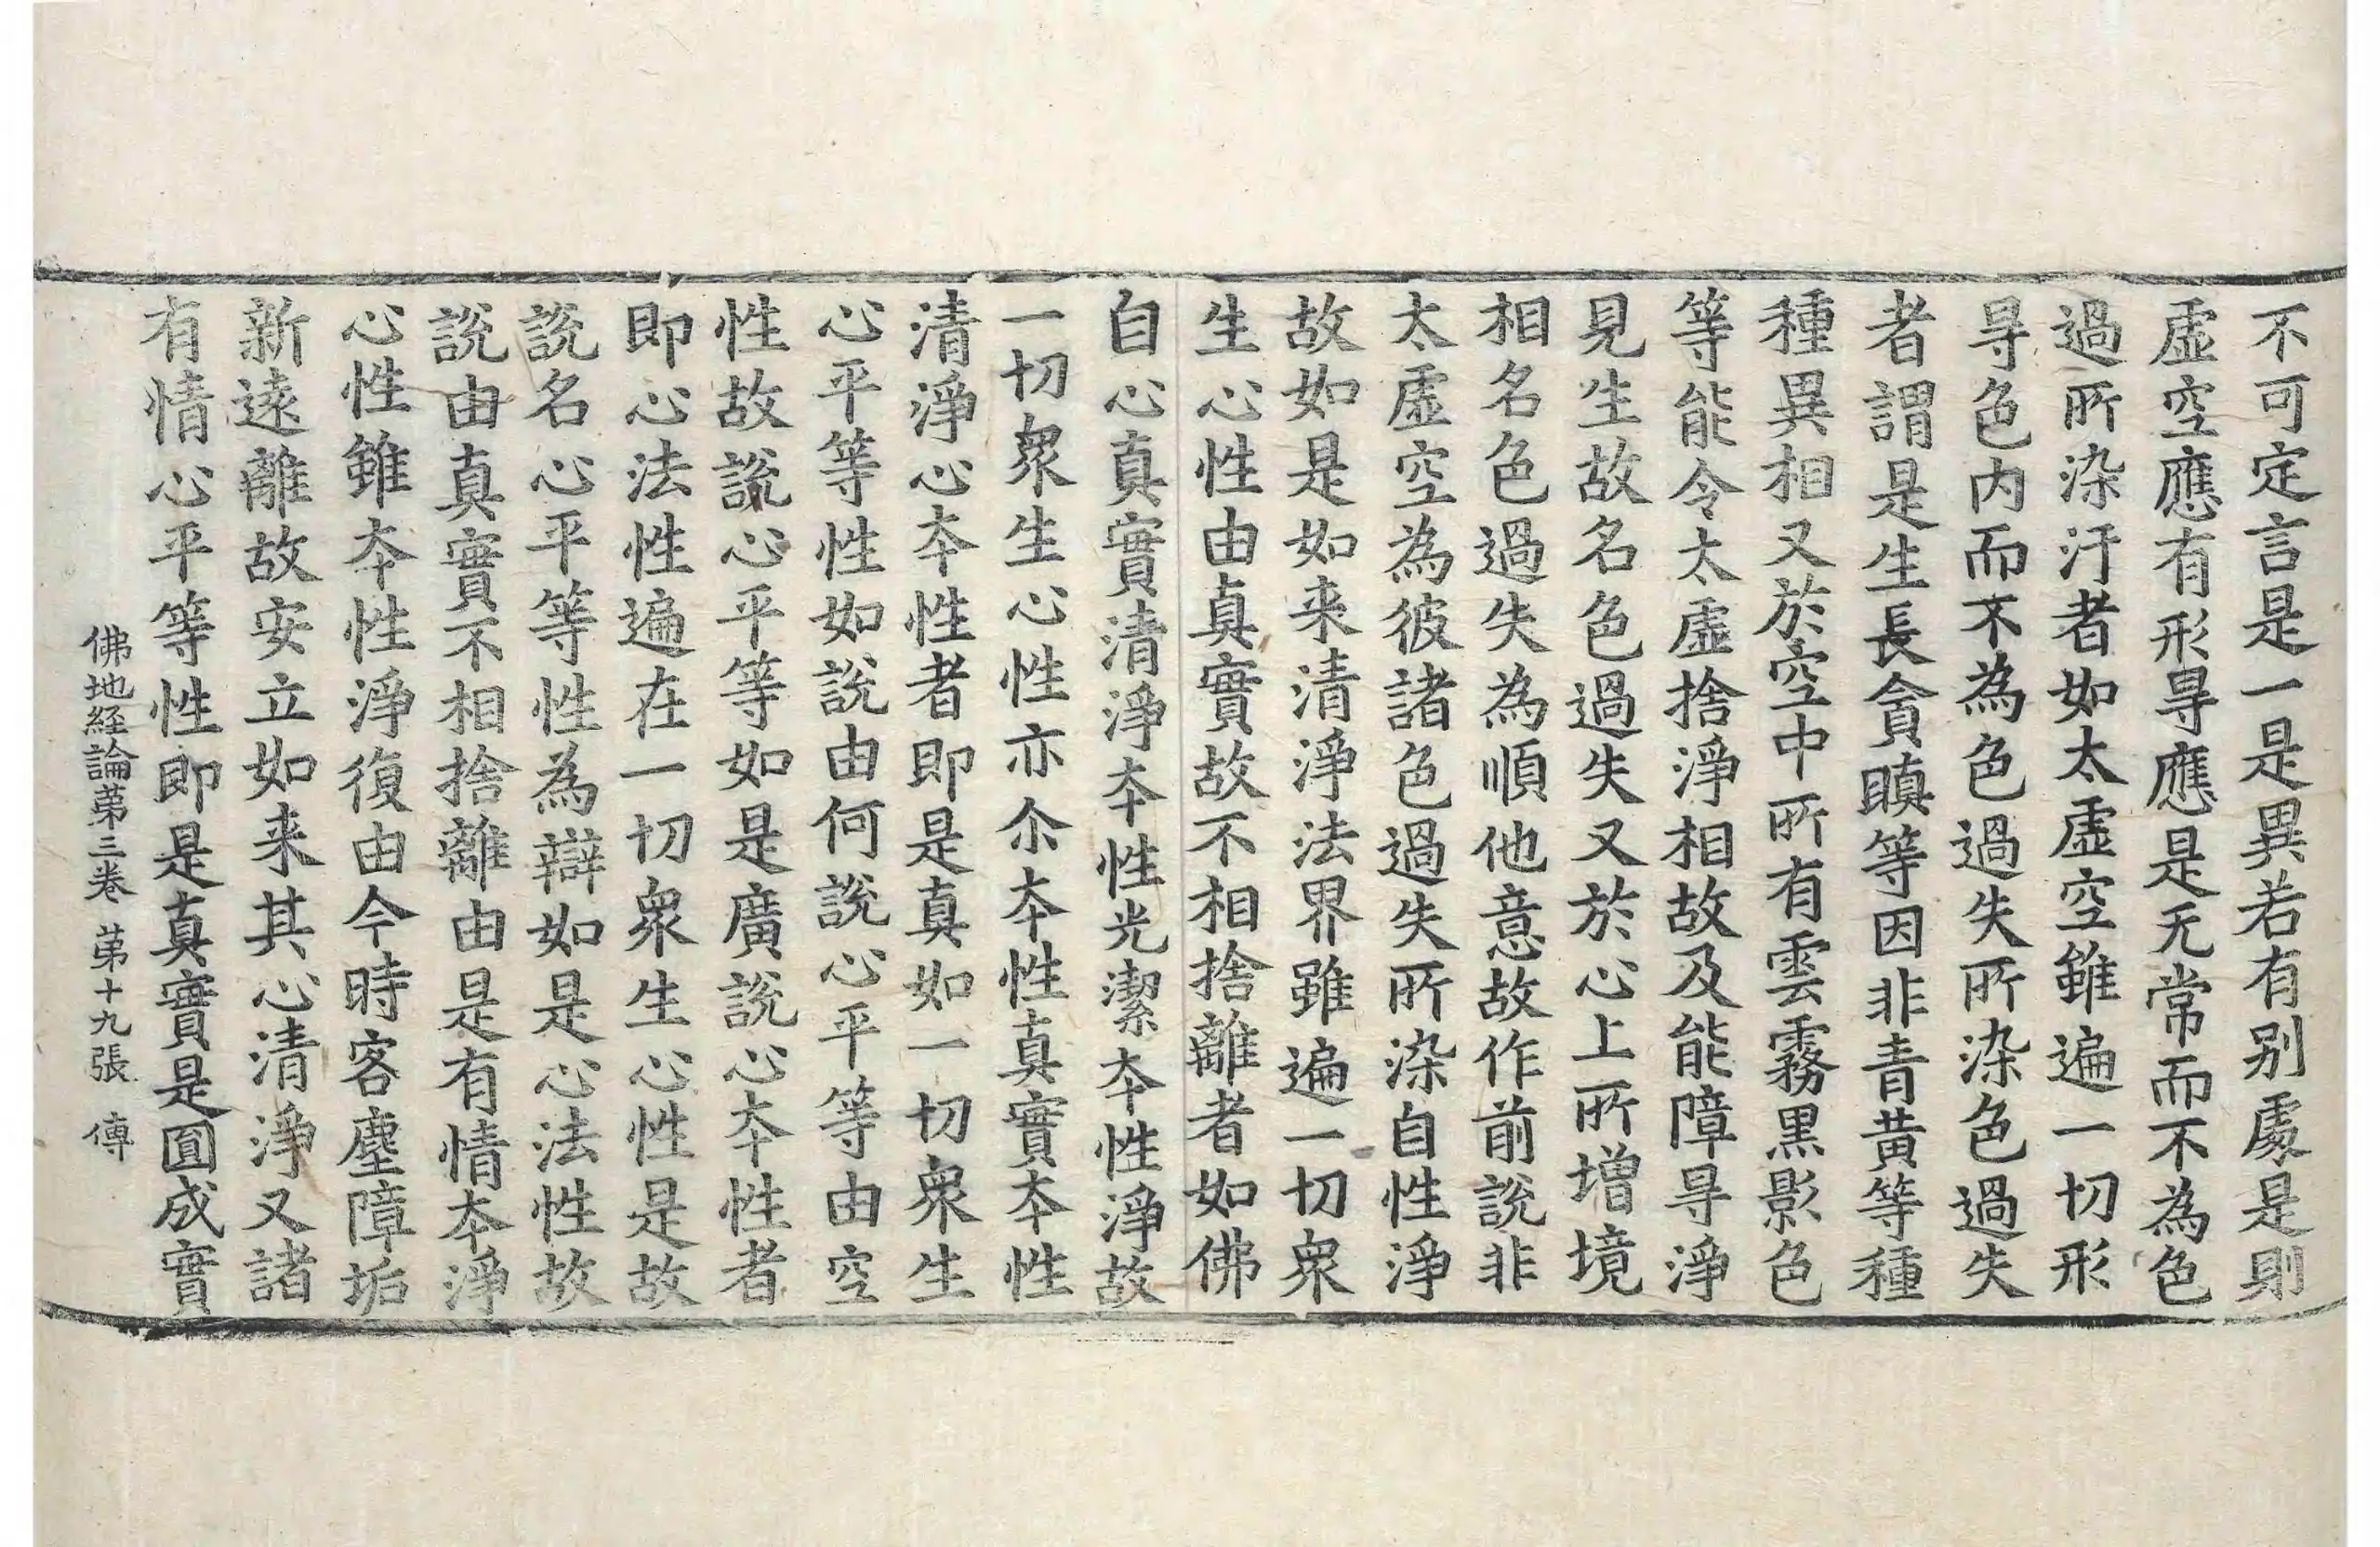 不可定言是一是異若有別處是則
虛空應有形㝵應是无常而不為色
過所染汙者如太虛空雖遍一切形
㝵色內而不為色過失所染色過失
者謂是生長貪瞋等因非青黃等種
種異相又於空中所有雲霧黑影色
等能令太虛捨淨相故及能障㝵淨
見生故名色過失又於心上所增境
相名色過失為順他意故作前說非
太虛空為彼諸色過失所染自性淨
故如是如来清淨法界雖遍一切衆
生心性由真實故不相捨離者如佛
自心真實清淨夲性光潔夲性淨故
一切衆生心性亦尒夲性真實夲性
清淨心夲性者即是真如一切衆生
心平等性如說由何說心平等由空
性故說心平等如是廣說心夲性者
即心法性遍在一切衆生心性是故
說名心平等性為辯如是心法性故
說由真實不相捨離由是有情夲淨
心性雖夲性淨復由今時客塵障垢
新遠離故安立如来其心清淨又諸
有情心平等性即是真實是圓成實
佛地経論第三卷 第十九張 傳